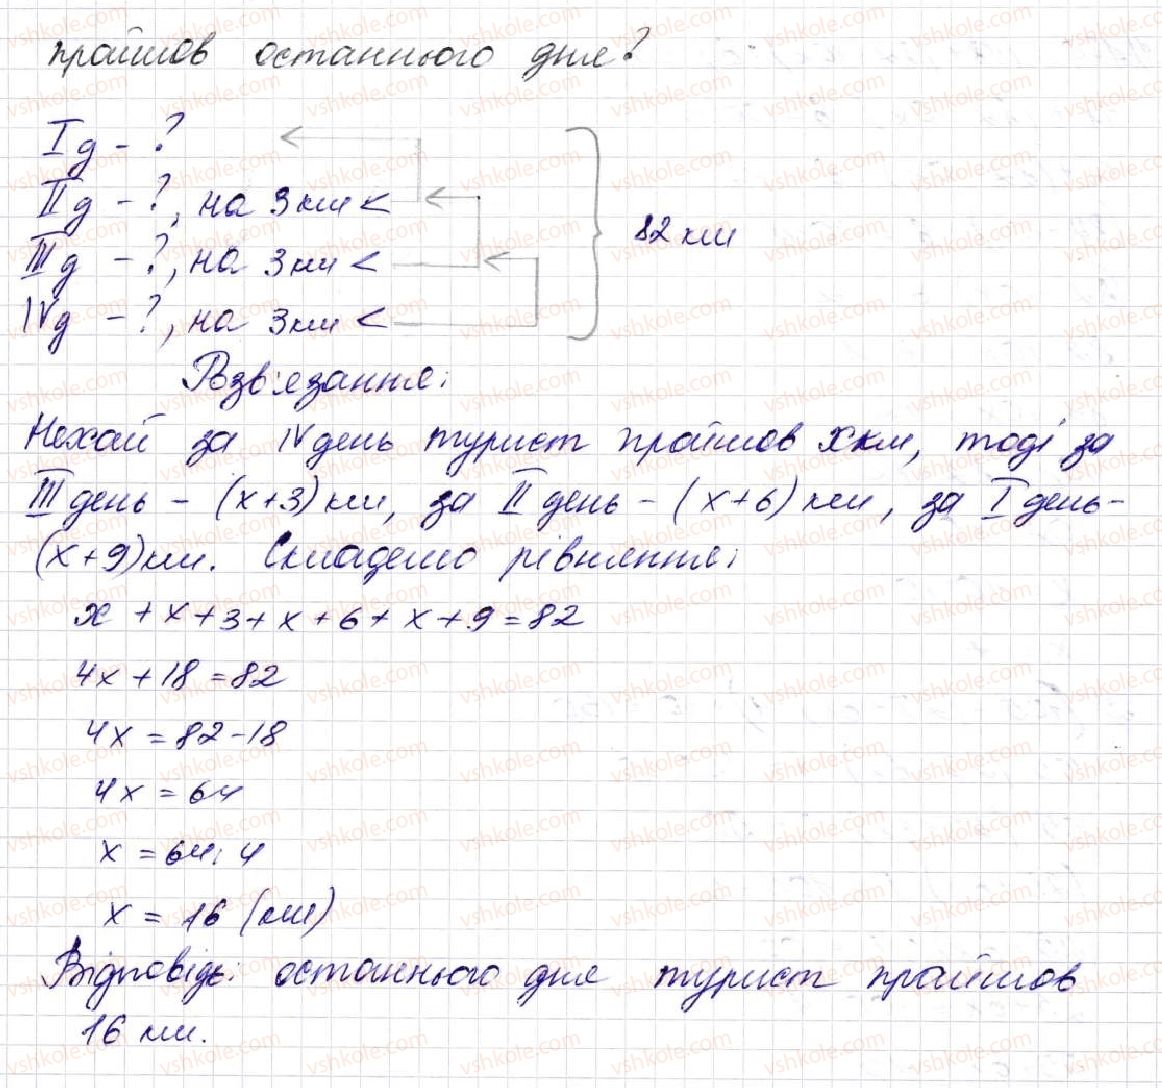 пройшов останнього дня?
I д - ?
II д - ?, на 3 км <
82 км
III д - ?, на 3 км <
IV д - ?, на 3 км <
Розв'язання:
Нехай за IV день турист пройшов x км, тоді за
III день - (x+3) км, за II день - (x+6) км, за I день -
(x+9) км. Складемо рівняння:
x + x + 3 + x + 6 + x + 9 = 82
4x + 18 = 82
4x = 82 - 18
4x = 64
x = 64 : 4
x = 16 (км)
Відповідь: останнього дня турист пройшов
16 км.
vshkole.com